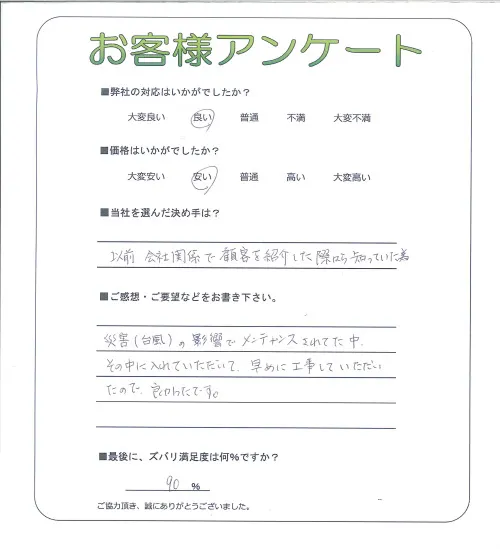 お客様アンケート
■弊社の対応はいかがでしたか?
大変良い 良い 普通 不満 大変不満
■価格はいかがでしたか?
大変安い 安い 普通 高い 大変高い
■当社を選んだ決め手は?
以前 会社関係で顧客を紹介した際から知っていた為
■ご感想・ご要望などをお書き下さい。
災害(台風)の影響でメンテナンスされてた中、
その中に入れていただいて、早めに工事していただい
たので、良かったです。
■最後に、ズバリ満足度は何%ですか?
90 %
ご協力頂き、誠にありがとうございました。